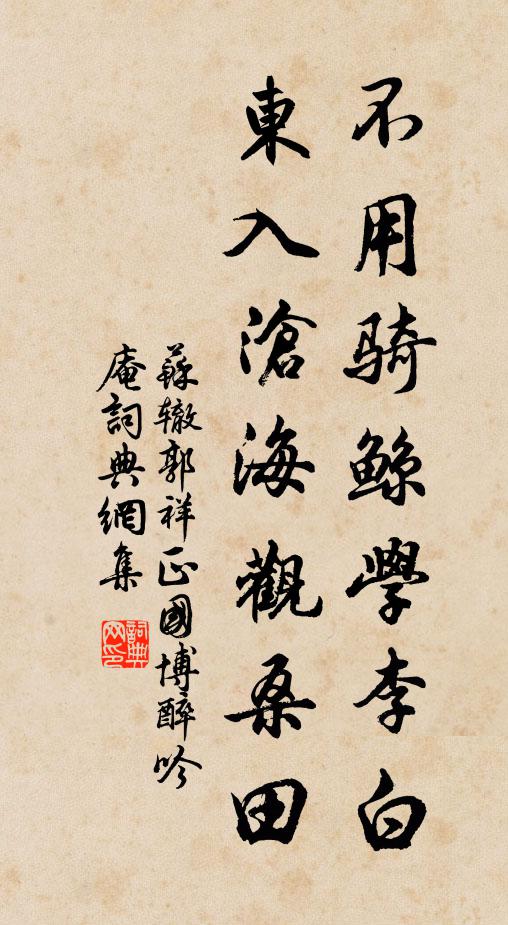 不用骑鲸學李白
東入滄海觀桑田
蘇辙郭祥正國博醉吟
庵詞典網集
詞典
网印